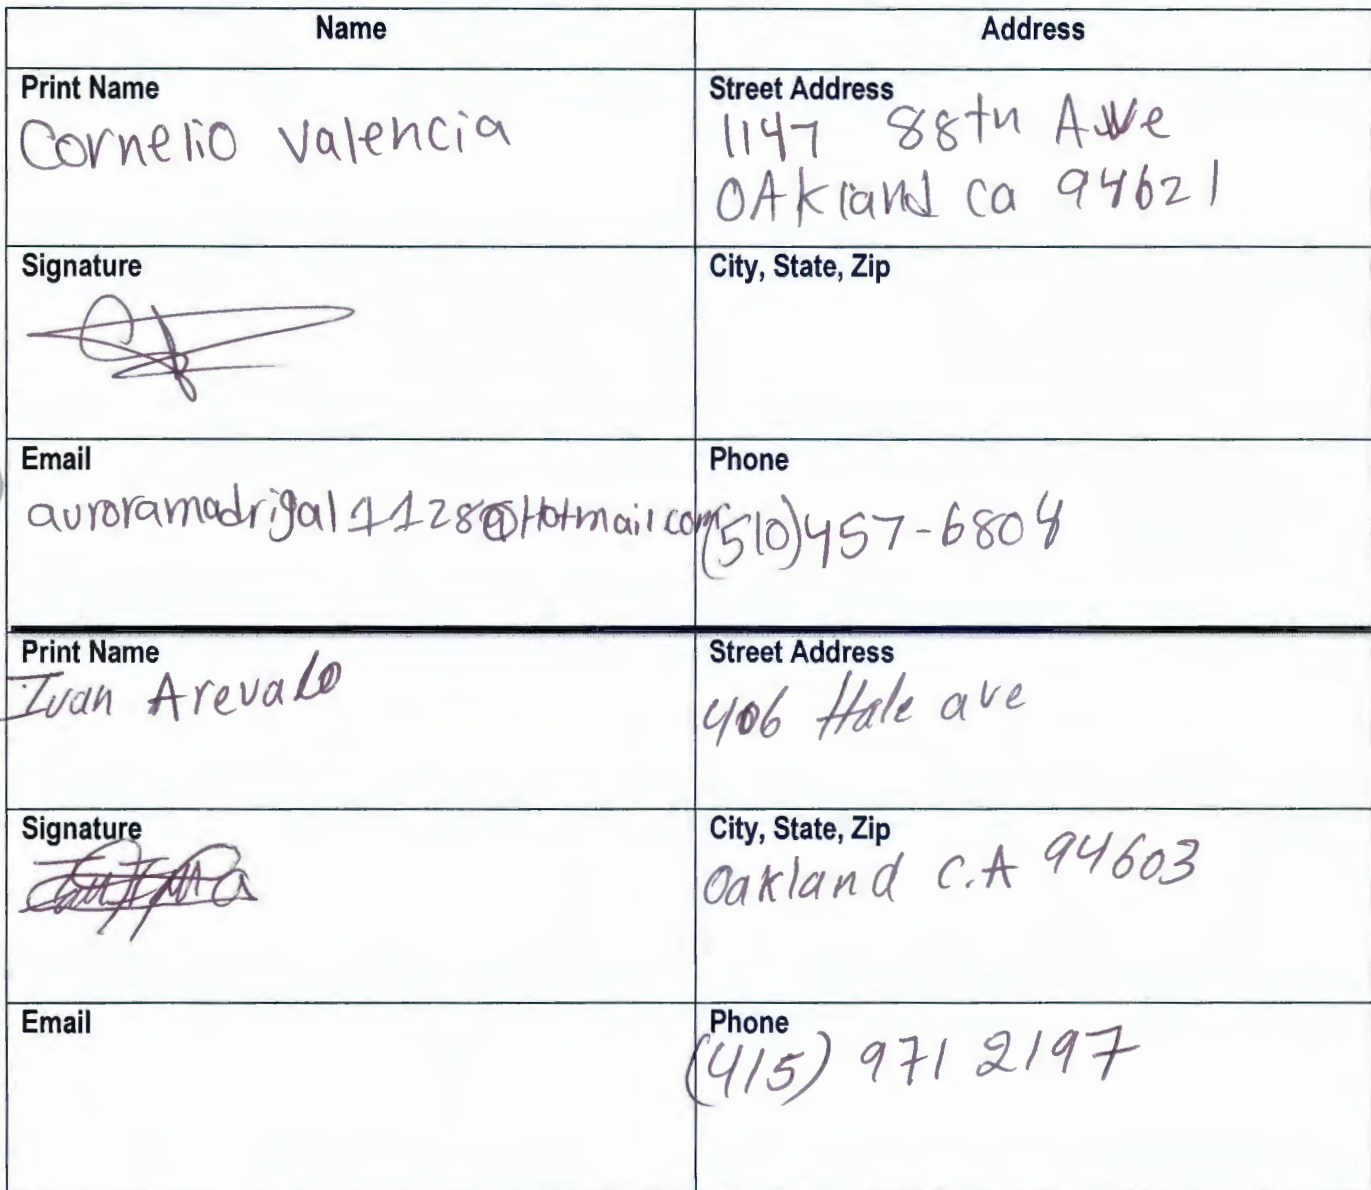 Name
Address
Print Name
Cornelio Valencia
Street Address
1147 88th Ave
OAkland ca 94621
Signature
City, State, Zip
Email
auroramadrigal1128@Hotmail.com
Phone
(510)457-6804
Print Name
Ivan Arevalo
Street Address
406 Hale ave
Signature
City, State, Zip
Oakland C.A 94603
Email
Phone
(415) 971 2197